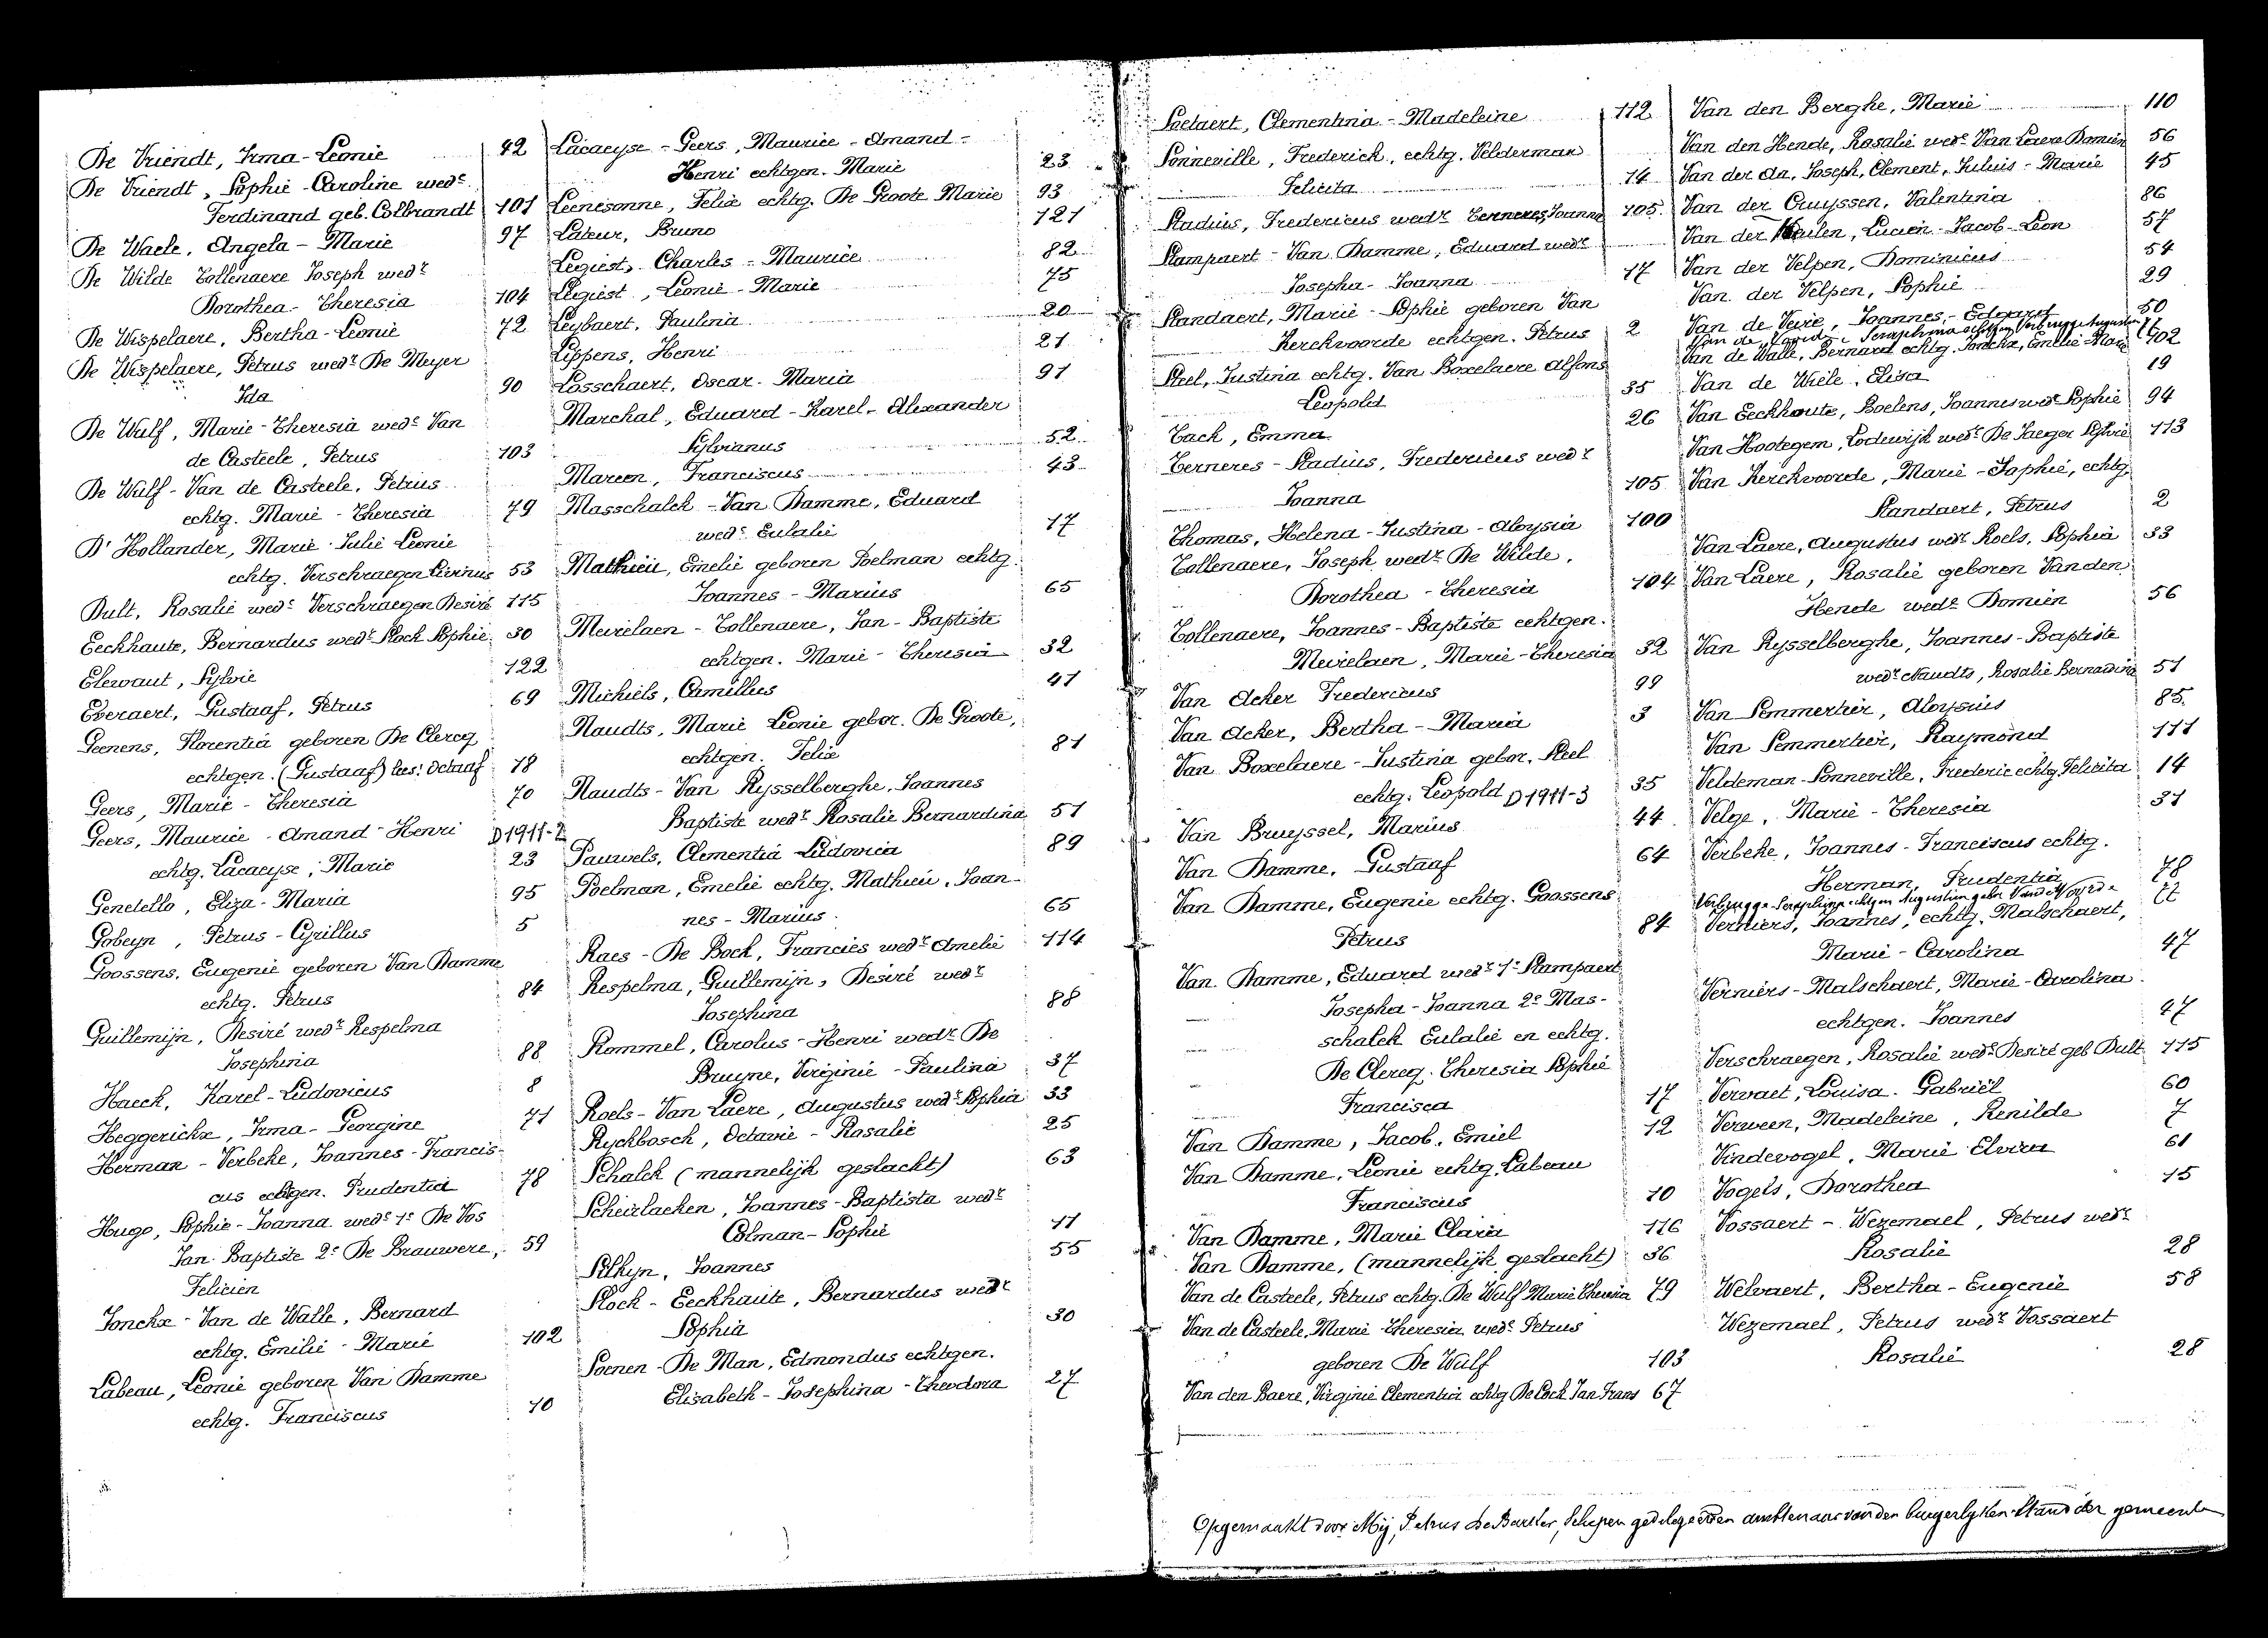 De Vriendt, Irma-Leonie 42
De Vriendt, Sophie-Caroline wede
Ferdinand geb. Colbrandt 101
De Waele, Angela-Marie 97
De Wilde Tollenaere Joseph wedr
Dorothea-Theresia 104
De Wispelaere, Bertha-Leonie 72
De Wispelaere, Petrus wedr De Meyer
Ida 90
De Wulf, Marie-Theresia wede Van
de Casteele, Petrus 103
De Wulf-Van de Casteele, Petrus
echtg. Marie-Theresia 79
D'Hollander, Marie Julie Leonie
echtg. Verschraegen Livinus 53
Dult, Rosalie wede Verschraegen Desiré 115
Eeckhaute, Bernardus wedr Stock Sophie 30
Elewaut, Sylvie 122
Everaert, Gustaaf, Petrus 69
Geenens, Florentia geboren De Clercq
echtgen. (Gustaaf) lees: Octaaf 18
Geers, Marie-Theresia 70
Geers, Maurice-Amand-Henri D1911-2
echtg. Lacaeyse, Marie 23
Genetello, Eliza-Maria 95
Gobeyn, Petrus-Cyrillus 5
Goossens, Eugenie geboren Van Damme
echtg. Petrus 84
Guillemijn, Desiré wedr Respelma
Josephina 88
Haeck, Karel-Ludovicus 8
Heggerickx, Irma-Georgine 71
Herman-Verbeke, Joannes-Francis-
cus echtgen. Prudentia 78
Hugo, Sophie-Joanna wede 1e De Vos
Jan Baptiste 2e De Brauwere, 59
Felicien
Jonckx-Van de Walle, Bernard
echtg. Emilie-Marie 102
Labeau, Leonie geboren Van Damme
echtg. Franciscus 10
Lacaeyse-Geers, Maurice-Amand-
Henri echtgen. Marie 23
Leenesonne, Felix echtg. De Groote Marie 93
Lateur, Bruno 121
Legiest, Charles-Maurice 82
Legiest, Leonie-Marie 75
Leybaert, Paulina 20
Lippens, Henri 21
Losschaert, Oscar-Maria 91
Marchal, Eduard-Karel-Alexander
Sylvianus 52
Mareen, Franciscus 43
Masschalck-Van Damme, Eduard
wedr Eulalie 17
Mathieu, Emelie geboren Poelman echtg.
Joannes-Marius 65
Meirelaen-Tollenaere, Jan-Baptiste
echtgen. Marie-Theresia 32
Michiels, Camillus 41
Naudts, Marie Leonie gebor. De Groote,
echtgen. Felix 81
Naudts-Van Rysselberghe, Joannes
Baptiste wedr Rosalie Bernardina 51
Pauwels, Clementia Ludovica 89
Poelman, Emelie echtg. Mathieu, Joan-
nes-Marius 65
Raes-De Bock, Francies wedr Amelie 114
Respelma, Guillemijn, Desiré wedr
Josephina 88
Rommel, Carolus-Henri wedr De
Bruyne, Virginie-Paulina 37
Roels-Van Laere, Augustus wedr Sophia 33
Ryckbosch, Octavie-Rosalie 25
Schalck (mannelijk geslacht) 63
Scheirlacken, Joannes-Baptista wedr
Colman-Sophie 11
Selhyn, Joannes 55
Stock-Eeckhaute, Bernardus wedr
Sophia 30
Soenen-De Man, Edmondus echtgen.
Elisabeth-Josephina-Theodora 27
Soetaert, Clementina-Madeleine 112
Sonneville, Frederick, echtg. Velderman
Felicita 14
Stadius, Fredericus wedr Terneres, Joanna 105
Stampaert-Van Damme, Eduard wedr
Josepha-Joanna 17
Standaert, Marie-Sophie geboren Van
Kerckvoorde echtgen. Petrus 2
Steel, Justina echtg. Van Boxelaere Alfons
Leopold 35
Tack, Emma 26
Terneres-Stadius, Fredericus wedr
Joanna 105
Thomas, Helena-Justina-Aloysia 100
Tollenaere, Joseph wedr De Wilde,
Dorothea-Theresia 104
Tollenaere, Joannes-Baptiste echtgen.
Meirelaen, Marie-Theresia 32
Van Acker Fredericus 99
Van Acker, Bertha-Maria 3
Van Boxelaere-Justina gebor. Steel
echtg. Leopold D1911-3 35
Van Bruyssel, Marius 44
Van Damme, Gustaaf 64
Van Damme, Eugenie echtg. Goossens
Petrus 84
Van Damme, Eduard wedr 1e Stampaert
Josepha-Joanna 2e Mas-
schalck Eulalie en echtg.
De Clercq Theresia Sophie
Francisca 17
Van Damme, Jacob, Emiel 12
Van Damme, Leonie echtg. Labeau
Franciscus 10
Van Damme, Marie Claria 116
Van Damme, (mannelijk geslacht) 36
Van de Casteele, Petrus echtg. De Wulf Marie Theresia 79
Van de Casteele, Marie-Theresia wede Petrus
geboren De Wulf 103
Van den Baere, Virginie Clementia echtg De Cock Jan Frans 67
Van den Berghe, Marie 110
Van den Hende, Rosalie wede Van Laere Domien 56
Van der Aa, Joseph, Clement, Julius-Marie 45
Van der Cruyssen, Valentina 86
Van der Meulen, Lucien-Jacob-Leon 57
Van der Velpen, Dominicus 54
Van der Velpen, Sophie 29
Van de Veire, Joannes,-Edgard 50
Van de Seraphina echtgen Verbrugge Augustin
Van de Walle, Bernard echtg. Jonckx, Emelie Marie 102
Van de Wiele, Elisa 19
Van Eeckhoute, Boelens, Joannes wedr Sophie 94
Van Hootegem, Lodewijk wedr De Jaeger Sylvie 113
Van Kerckvoorde, Marie-Sophie, echtg.
Standaert, Petrus 2
Van Laere, Augustus wedr Roels, Sophia 33
Van Laere, Rosalie geboren Vanden
Hende wede Domien 56
Van Rysselberghe, Joannes-Baptiste
wedr Naudts, Rosalie Bernardina 51
Van Semmertier, Aloysius 85
Van Semmertier, Raymond 111
Veldeman-Sonneville, Frederic echtg. Felicita 14
Velge, Marie-Theresia 31
Verbeke, Joannes-Franciscus echtg.
Herman, Prudentia 78
Verbrugge-Seraphina echtgen Augustin gebr Vande
Verniers, Joannes, echtg. Malschaert,
Marie-Carolina 47
Verniers-Malschaert, Marie-Carolina
echtgen. Joannes 47
Verschraegen, Rosalie wede Desiré geb Dult 115
Vervaet, Louisa-Gabriël 60
Verween, Madeleine, Renilde 7
Vindevogel, Marie Elvira 61
Vogels, Dorothea 15
Vossaert-Wezemael, Petrus wedr
Rosalie 28
Welvaert, Bertha-Eugenie 58
Wezemael, Petrus wedr Vossaert
Rosalie 28
Opgemaakt door Mij, Petrus De Backer, Schepen gedelegeerden ambtenaar van den burgerlyken Stand der gemeente